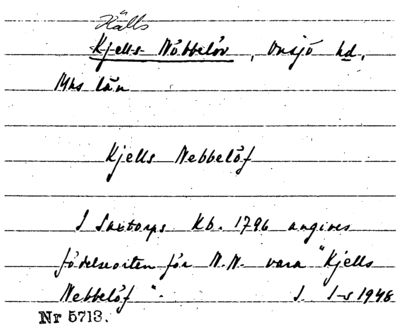 Källs
Kjells-Nöbbelöv, Onsjö hd,
Mhs län
Kjells Nebbelöf
I Saxtorps Kb. 1796 angives
födelseorten för N.N. vara "Kjells
Nebbelöf". 1948
Nr 5713.